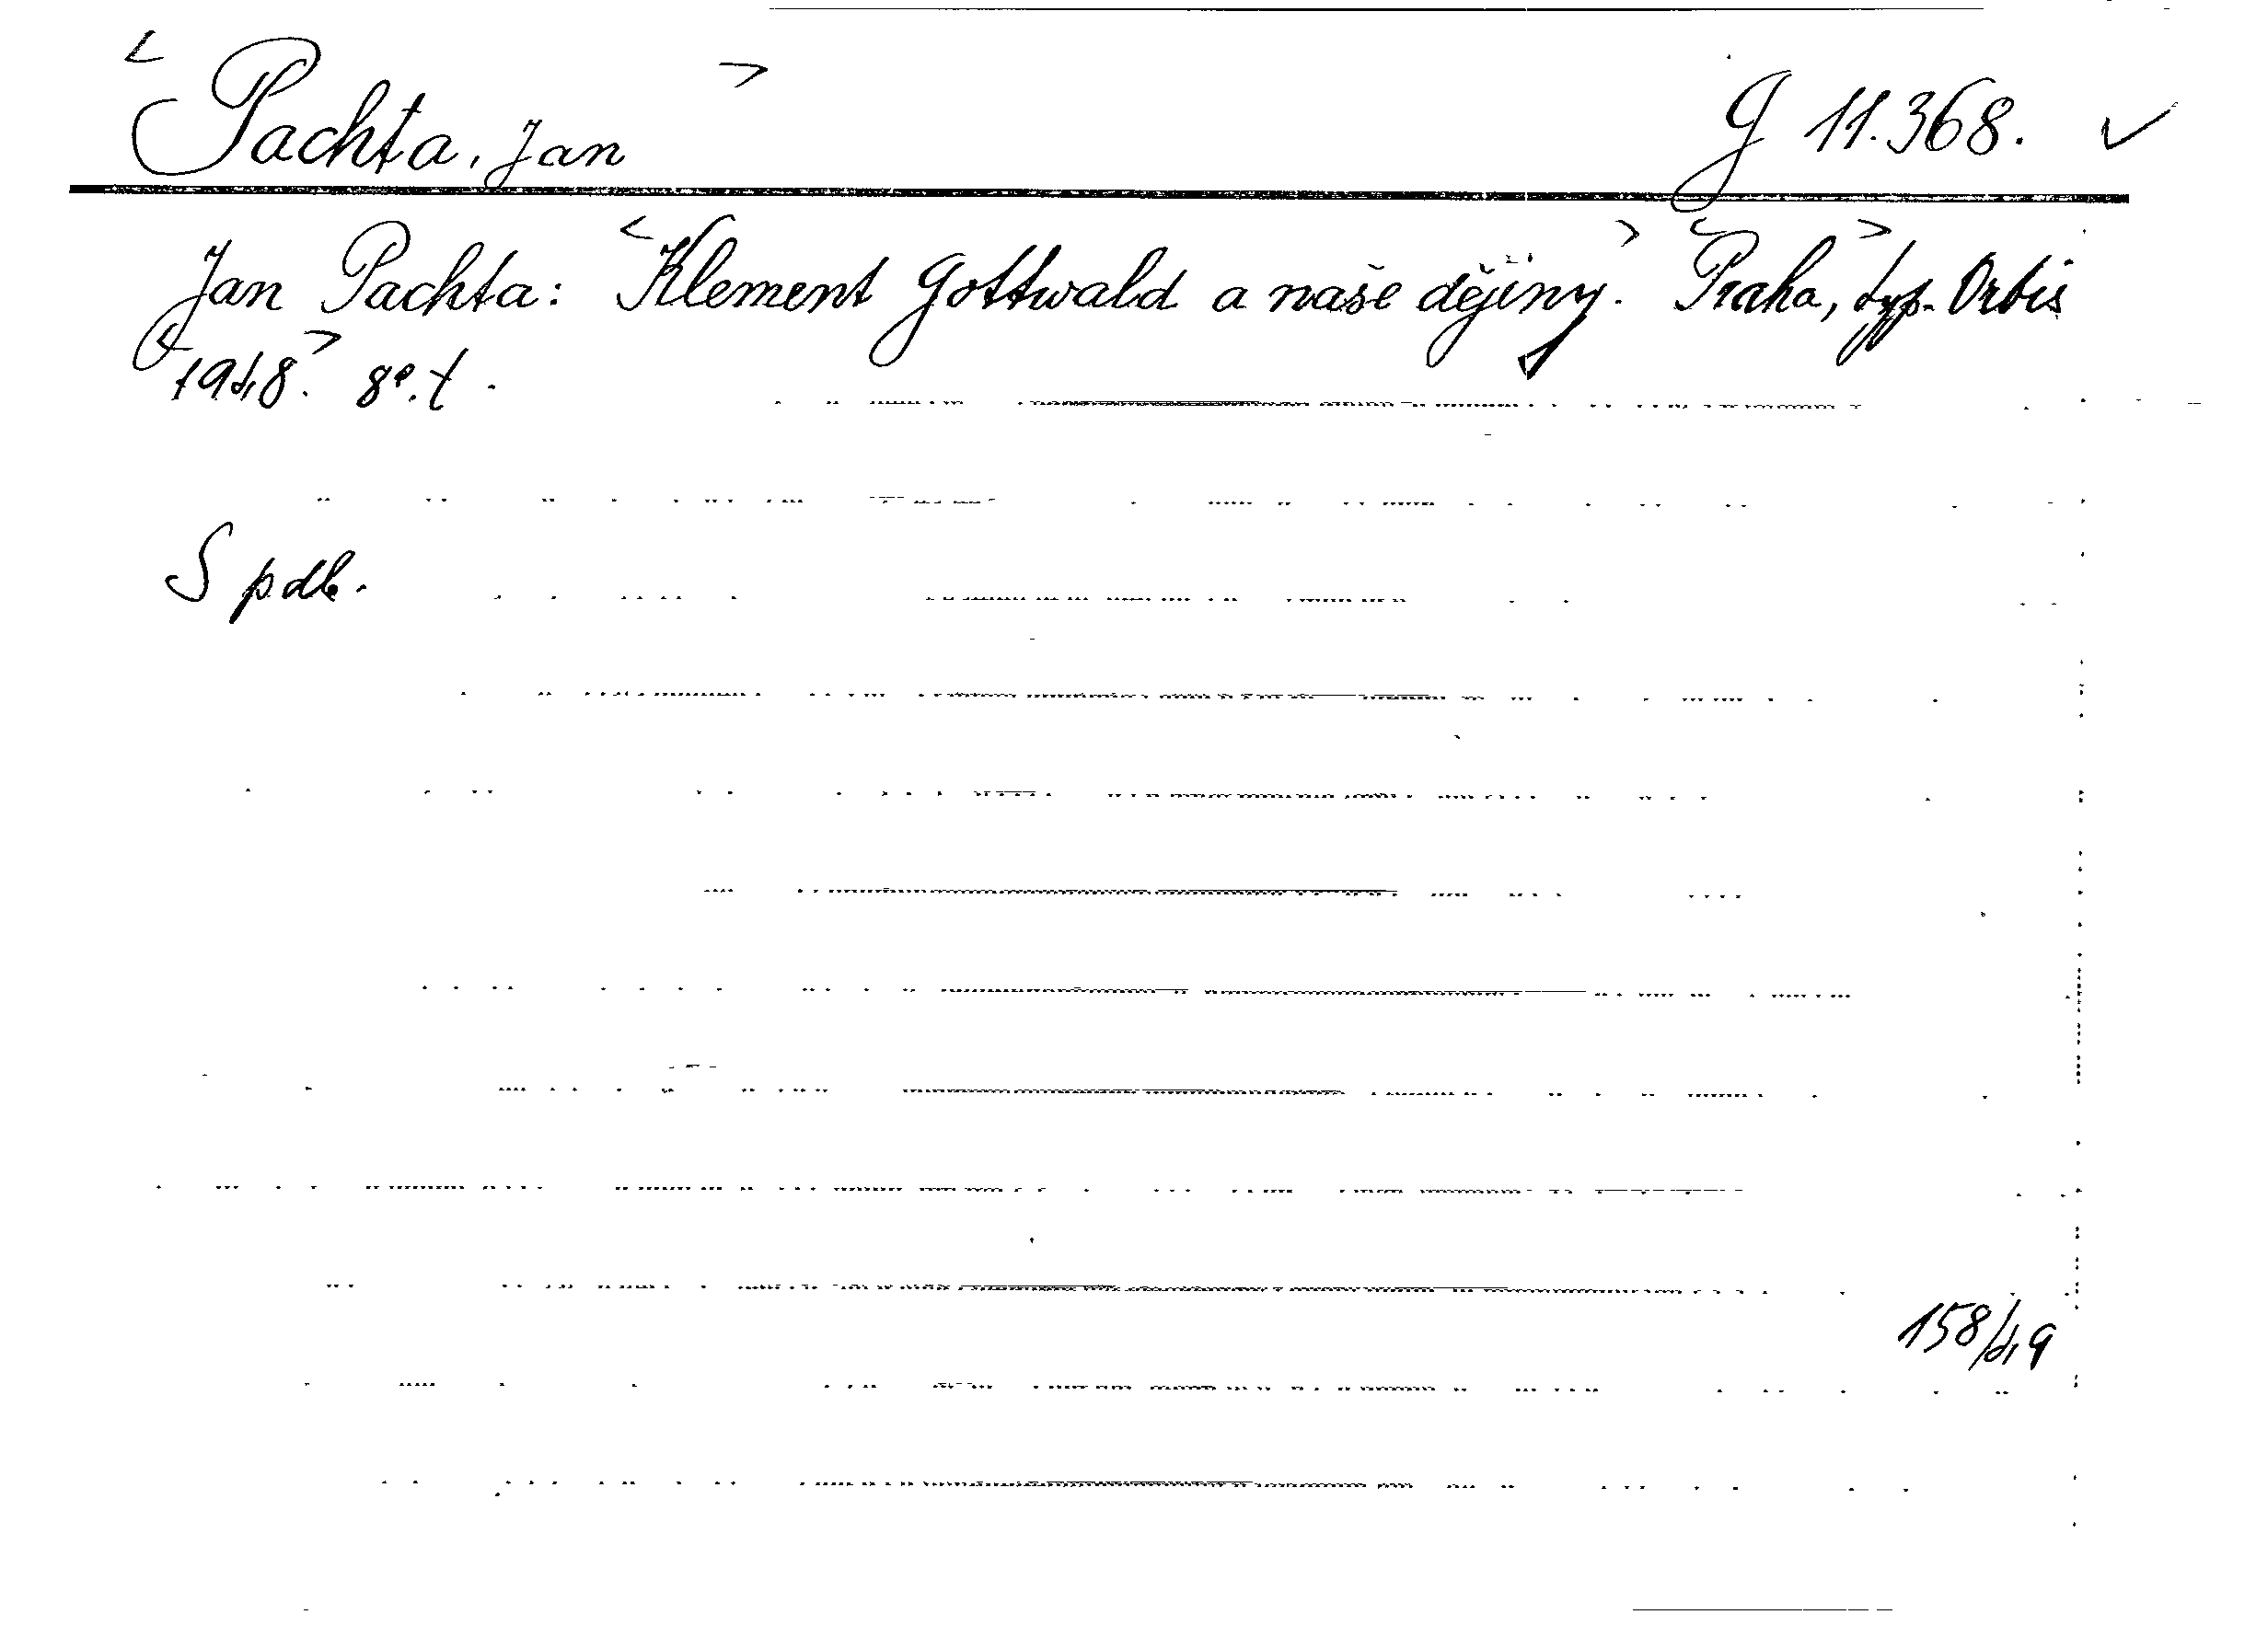 < Pachta, Jan > G 11.368. ✓
Jan Pachta: <Klement Gottwald a naše dějiny.> <Praha,> typ. Orbis
<1948.> 8°. t.
S pdk.
158/49